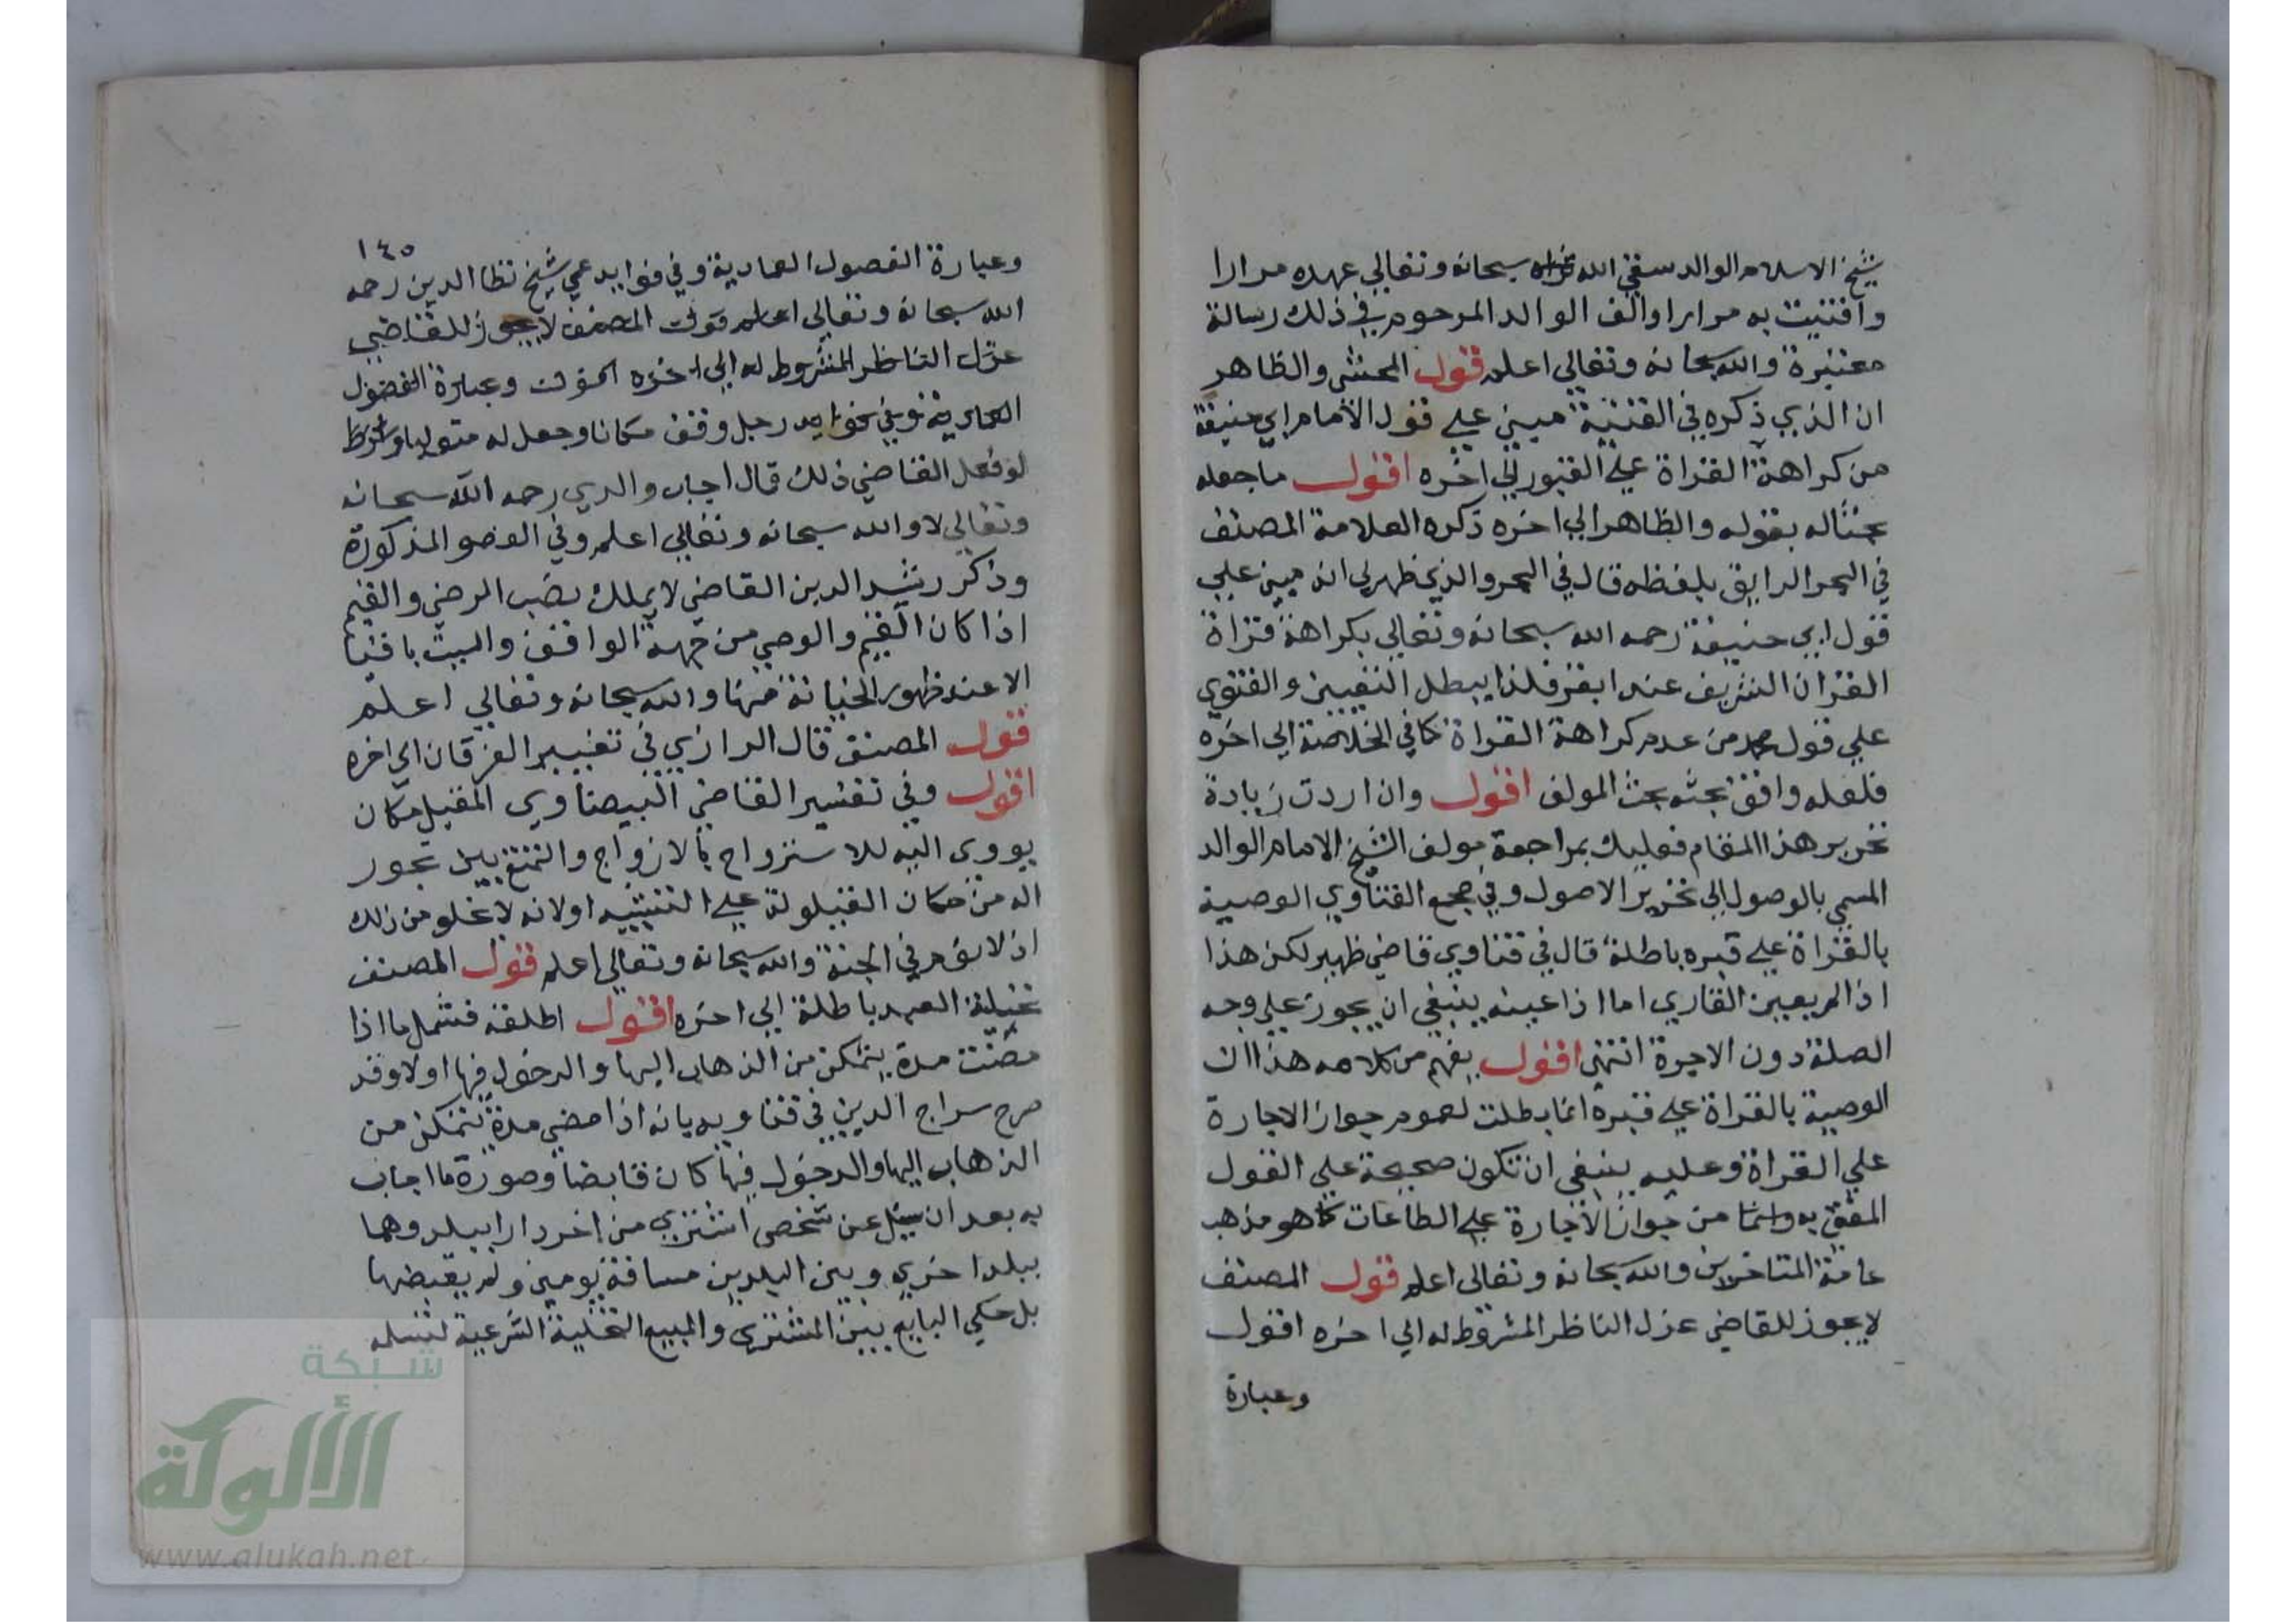 شيخ الاسلام الوالد سقي الله ثراه سبحانه وتعالي عهده مرارا
وافتيت به مرارا والف الوالد المرحوم في ذلك رسالة
معتبرة والله سبحانه وتعالي اعلم قول المحشي والظاهر
ان الذي ذكره في القنية مبني علي قول الأمام ابي حنيفة
من كراهة القراة علي القبور الي اخره اقول ما جعله
بحثا له بقوله والظاهر الي اخره ذكره العلامة المصنف
في البحر الرايق بلفظه قال في البحر والذي ظهر لي انه مبني علي
قول ابي حنيفة رحمه الله سبحانه وتعالي بكراهة قراة
القران الشريف عند القبر فلذا يبطل التعيين والفتوي
علي قول محمد من عدم كراهة القراة كما في الخلاصة الي اخره
فلعله وافق بحثه بحث المولف اقول وان اردت زيادة
تحرير هذا المقام فعليك بمراجعة مولف الشيخ الامام الوالد
المسمي بالوصول الي تحرير الاصول وفي مجمع الفتاوي الوصية
بالقراة علي قبره باطلة قال في فتاوي قاضي ظهير لكن هذا
اذا لم يعين القاري اما اذا عينه ينبغي ان يجوز علي وجه
الصلة دون الاجرة انتهي اقول يفهم من كلامه هذا ان
الوصية بالقراة علي قبره انما بطلت لعموم جواز الاجارة
علي القراة وعليه ينبغي ان تكون صحيحة علي القول
المفتي به من جواز الأجارة علي الطاعات كما هو مذهب
عامة المتاخرين والله سبحانه وتعالي اعلم قول المصنف
لا يجوز للقاضي عزل الناظر المشروط له الي اخره اقول
وعبارة
١٤٥
وعبارة الفصول العمادية وفي فوايد عمي شيخ نظا الدين رحمه
الله سبحانه وتعالي اعلم قوله المصنف لا يجوز للقاضي
عزل الناظر المشروط له الي اخره اقول وعبارة الفصول
العمادية وفي فوايد رجل وقف مكانا وجعل له متوليا وشرط
لو فعل القاضي ذلك قال اجاب والدي رحمه الله سبحانه
وتعالي لا والله سبحانه وتعالي اعلم وفي الفصو المذكورة
وذكر رشيد الدين القاضي لا يملك نصب الرضي والقيم
اذا كان القيم والوصي من جهة الواقف والميت باقيا
الا عند ظهور الخيانة منها والله سبحانه وتعالي اعلم
قول المصنف قال الرازي في تفسير الفرقان الي اخره
اقول وفي تفسير القاضي البيضاوي المقيل مكان
يووي اليه للاستزواح بالازواج والتمتع بهن تجوز
اله من مكان القيلولة علي التشبيه او لانه لا يخلو من ذلك
اذ لا نوم في الجنة والله سبحانه وتعالي اعلم قول المصنف
تخلية العبد باطلة الي اخره اقول اطلقه فشمل ما اذا
مضت مدة يتمكن من الذهاب اليها والدخول فيها او لا وقد
صرح سراج الدين في فتاويه بانه اذا مضي مدة يتمكن من
الذهاب اليها والدخول فيها كان قابضا وصورة ما اجاب
به بعد ان سيل عن شخص اشتري من اخر دارا ببلد وهما
ببلد اخري وبين البلدين مسافة يومين ولم يقبضها
بل حكي البايع بين المشتري والمبيع التخلية الشرعية لتسلم
شبكة
الألوكة
www.alukah.net